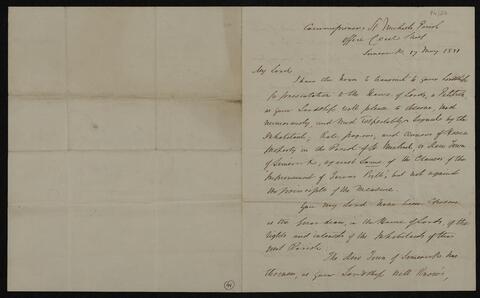 Commissioners St Michaels Parish
Office Cecil Street
Limerick 17 May 18
My Lord,
I have the honor to transmit to your Lordship
for presentation to the House of Lords, a Petition,
as your Lordship will please to observe, most
numerously, and most respectably signed by the
Inhabitants, Rate payers, and owners of House
Property in the Parish of St Michael, or New Town
of Limerick, against some of the Clauses of the
Improvement of Towns Bill, but not against
the principle of the Measure.
You my Lord have been
as the Guardian, in the House of Lords, of the
rights and interests of the Inhabitants of this
Parish
The New Town of Limerick has
as your Lordship well knows,